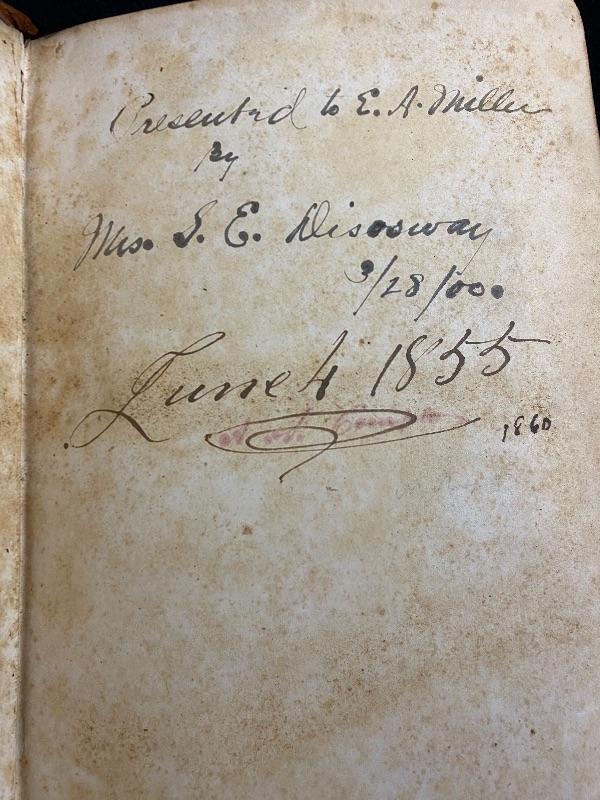 Presented to E. A. Miller
By
Mrs. S. E. Disosway
3/28/00.
June 4 1855
1860